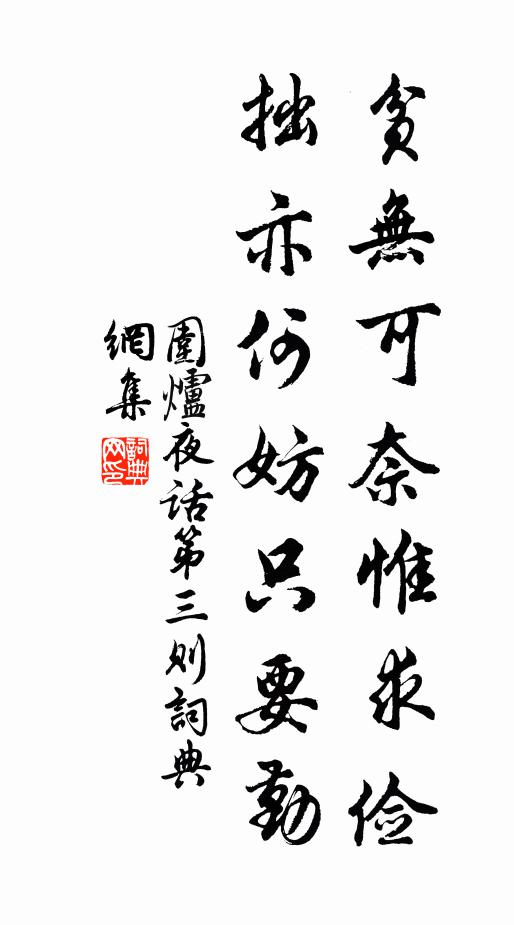 貧無可奈惟求俭
拙亦何妨只要勤
圍爐夜话第三则詞典
網集
詞典
网印